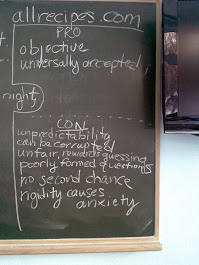 allrecipes.com
PRO
objective
universally accepted
right
CON
unpredictability
can be corrupted
unfair, rewards guessing
poorly formed questions
no second chance
rigidity causes
anxiety